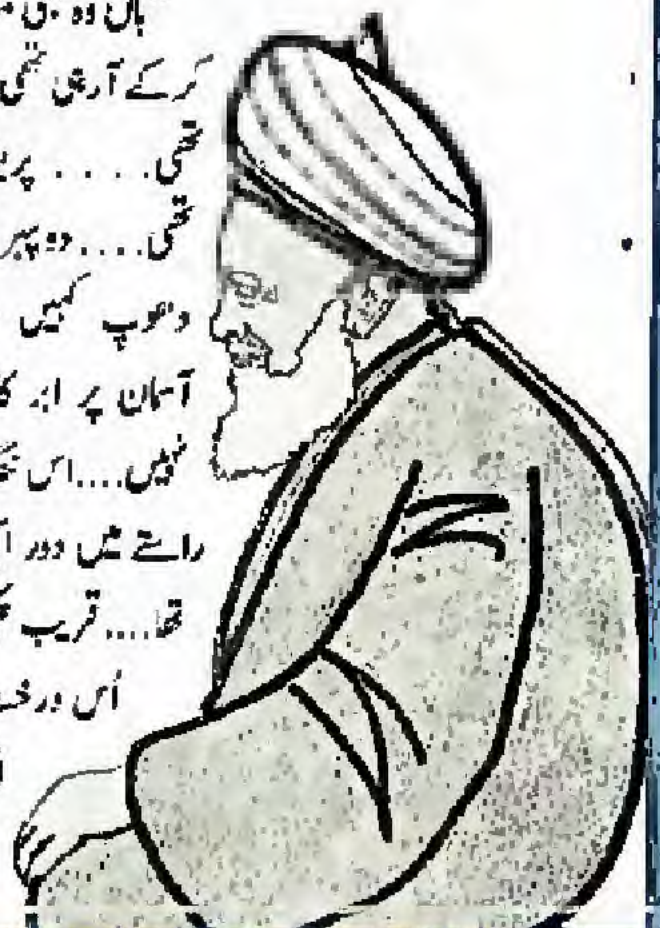 ہاں وہ
کر کے آ رہی تھی
تھی.....
تھی.... دوپہر
دھوپ کہیں
آسمان پر ابر کا
نہیں....اس
راستے میں دور
تھا.... قریب
اُس درخت